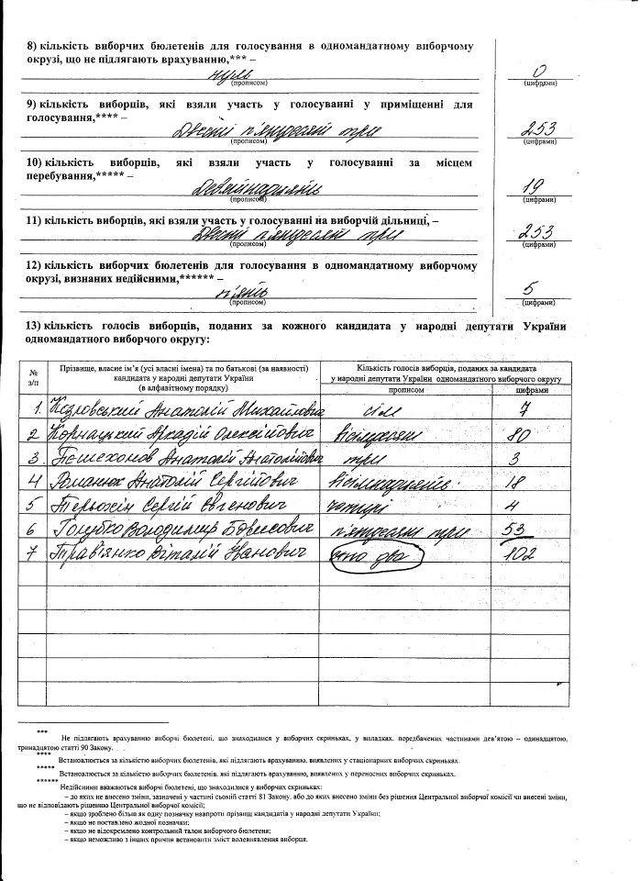 8) кількість виборчих бюлетенів для голосування в одномандатному виборчому
окрузі, що не підлягають врахуванню,*** –
нуль 0
(прописом) (цифрами)
9) кількість виборців, які взяли участь у голосуванні у приміщенні для
голосування,**** –
Двесті п'ятдесят три 253
(прописом) (цифрами)
10) кількість виборців, які взяли участь у голосуванні за місцем
перебування,***** –
19
(прописом) (цифрами)
11) кількість виборців, які взяли участь у голосуванні на виборчій дільниці, –
Двесті п'ятдесят три 253
(прописом) (цифрами)
12) кількість виборчих бюлетенів для голосування в одномандатному виборчому
окрузі, визнаних недійсними,****** –
п'ять 5
(прописом) (цифрами)
13) кількість голосів виборців, поданих за кожного кандидата у народні депутати України
одномандатного виборчого округу:
№ з/п Прізвище, власне ім'я (усі власні імена) та по батькові (за наявності) Кількість голосів виборців, поданих за кандидата
кандидата у народні депутати України у народні депутати України одномандатного виборчого округу
(в алфавітному порядку) прописом цифрами
1. Козловський Анатолій Михайлович сім 7
2 Корнацький Аркадій Олексійович вісімдесят 80
3 Пешехонов Анатолій Анатолійович три 3
4 Романюк Анатолій Сергійович 18
5 Терьохін Сергій Євгенович чотирі 4
6 Голубко Володимир Борисович п'ятдесят три 53
7 Трав'янко Віталій Іванович сто два 102
***
Не підлягають врахуванню виборчі бюлетені, що знаходилися у виборчих скриньках, у випадках, передбачених частинами дев'ятою – одинадцятою,
тринадцятою статті 90 Закону.
****
Встановлюється за кількістю виборчих бюлетенів, які підлягають врахуванню, виявлених у стаціонарних виборчих скриньках.
*****
Встановлюється за кількістю виборчих бюлетенів, які підлягають врахуванню, виявлених у переносних виборчих скриньках.
******
Недійсними вважаються виборчі бюлетені, що знаходилися у виборчих скриньках:
– до яких не внесено зміни, зазначені у частині сьомій статті 81 Закону, або до яких внесено зміни без рішення Центральної виборчої комісії чи внесені зміни,
що не відповідають рішенню Центральної виборчої комісії;
– якщо зроблено більш як одну позначку навпроти прізвищ кандидатів у народні депутати України;
– якщо не поставлено жодної позначки;
– якщо не відокремлено контрольний талон виборчого бюлетеня;
– якщо неможливо з інших причин встановити зміст волевиявлення виборця.